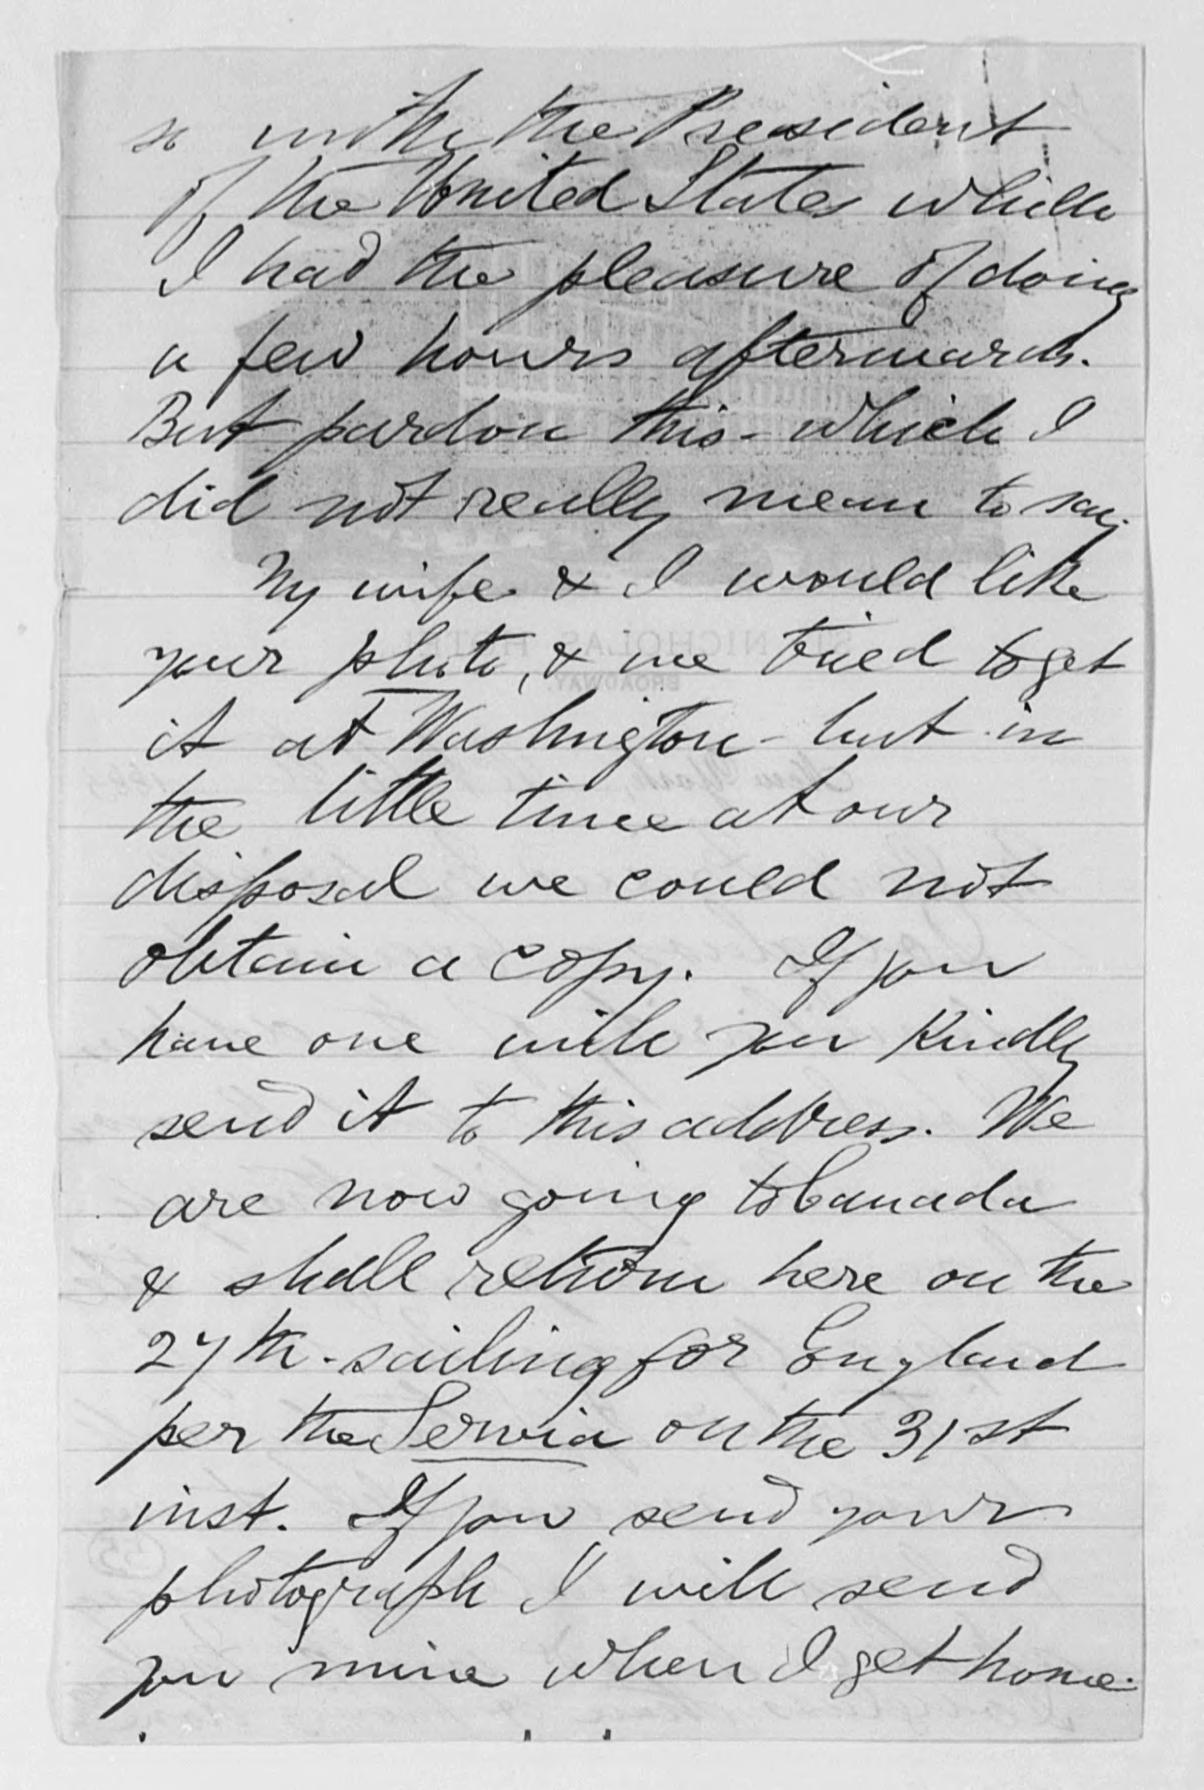 so with the President
of the United States which
I had the pleasure of doing
a few hours afterwards.
But pardon this - which I
did not really mean to say.
My wife & I would like
your photo, & we tried to get
it at Washington - but in
the little time at our
disposal we could not
obtain a copy. If you
have one will you kindly
send it to this address. We
are now going to Canada
& shall return here on the
27th. sailing for England
per the Servia on the 31st
inst. If you send your
photograph I will send
you mine when I get home.